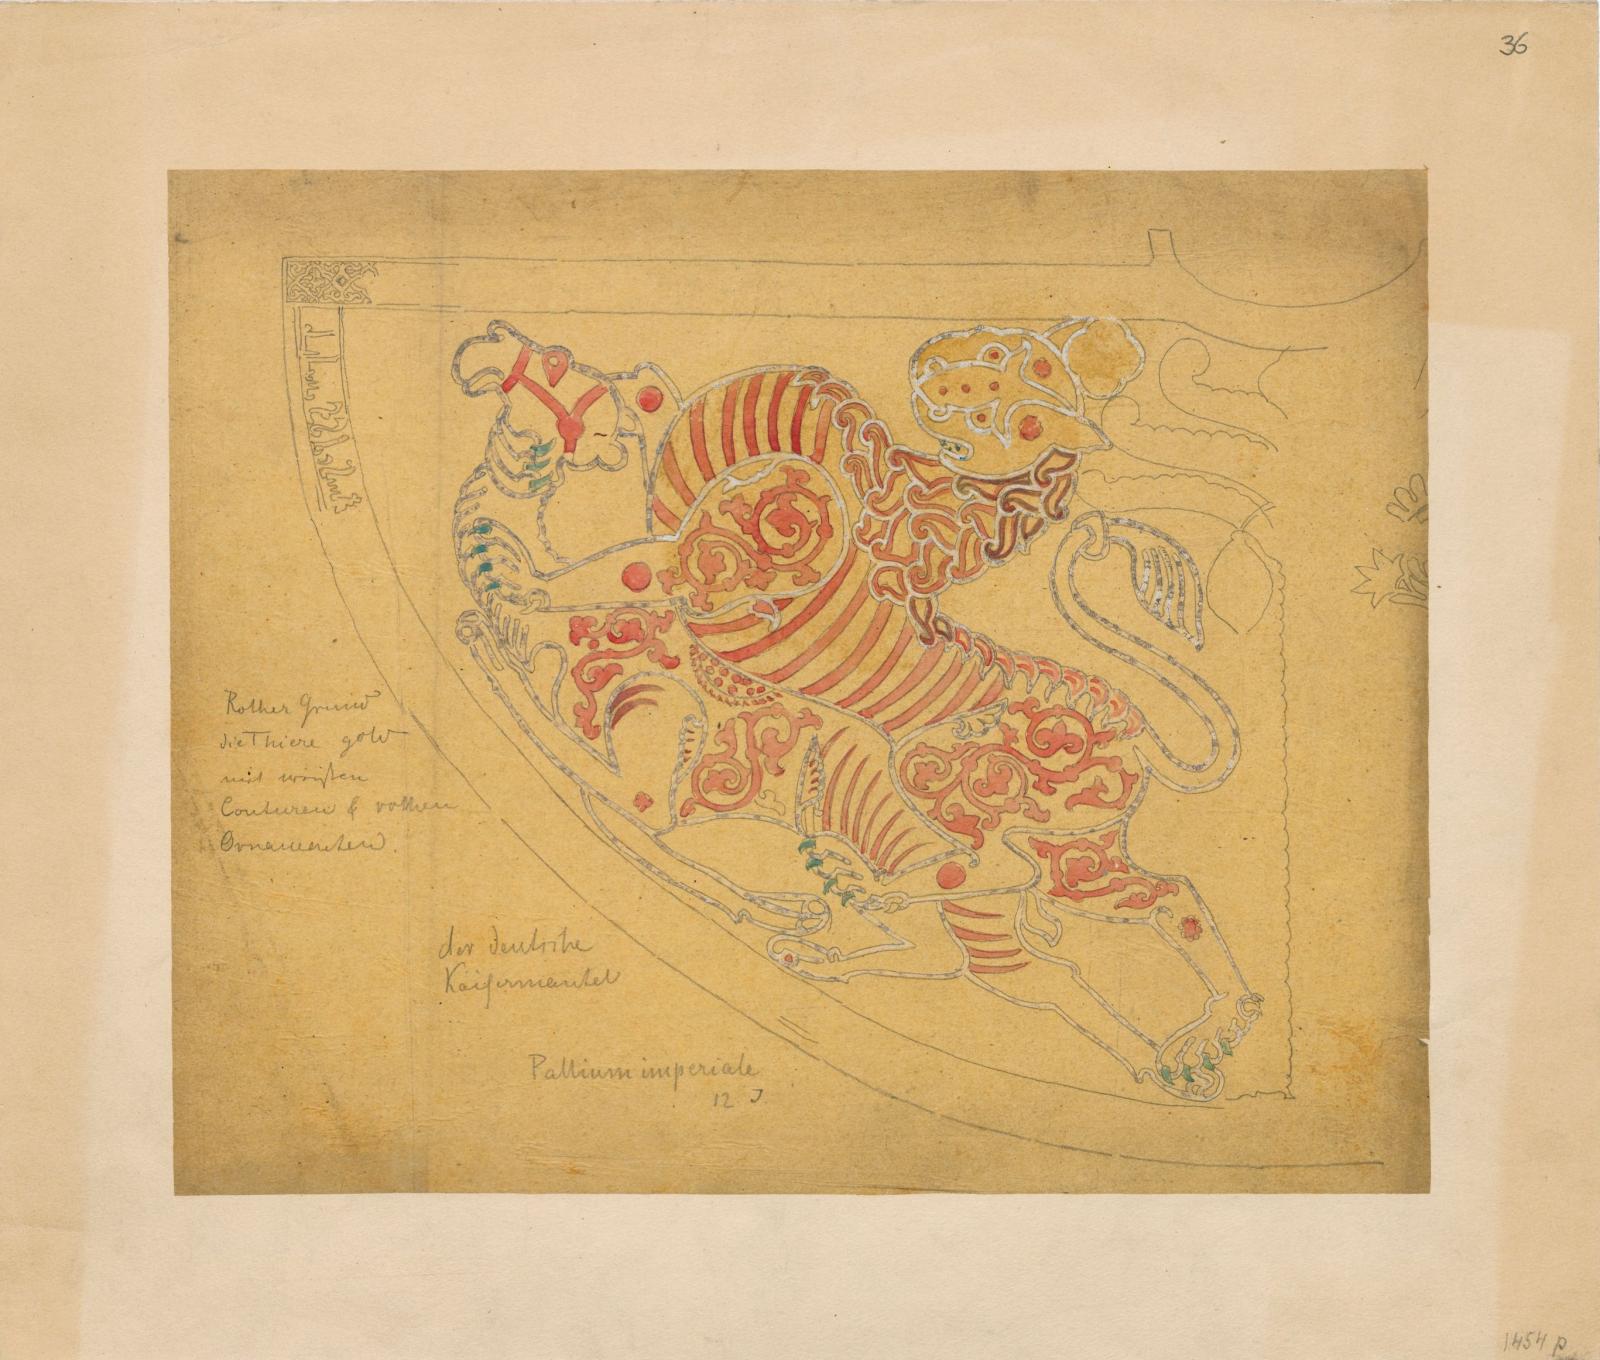 36
Rother Grund
die Thiere gold
mit weißen
Conturen & rothen
Ornamenten.
der deutsche
Kaisermantel
Pallium imperiale
12 J
1454 p